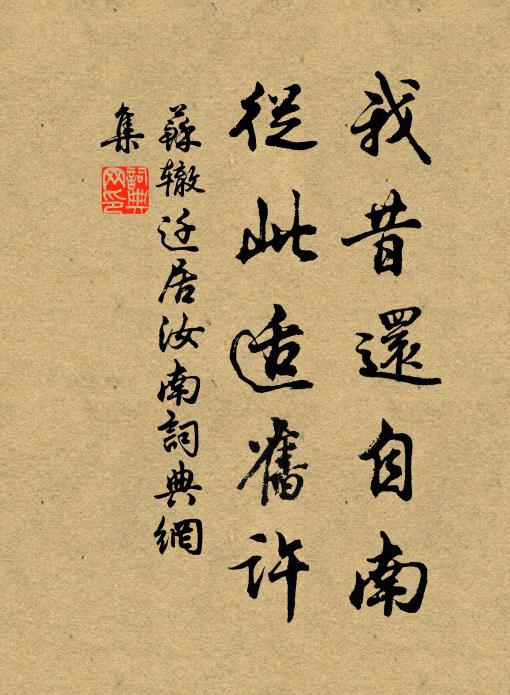 我昔還自南
從此适舊許
蘇辙迁居汝南詞典網
集
詞典网印